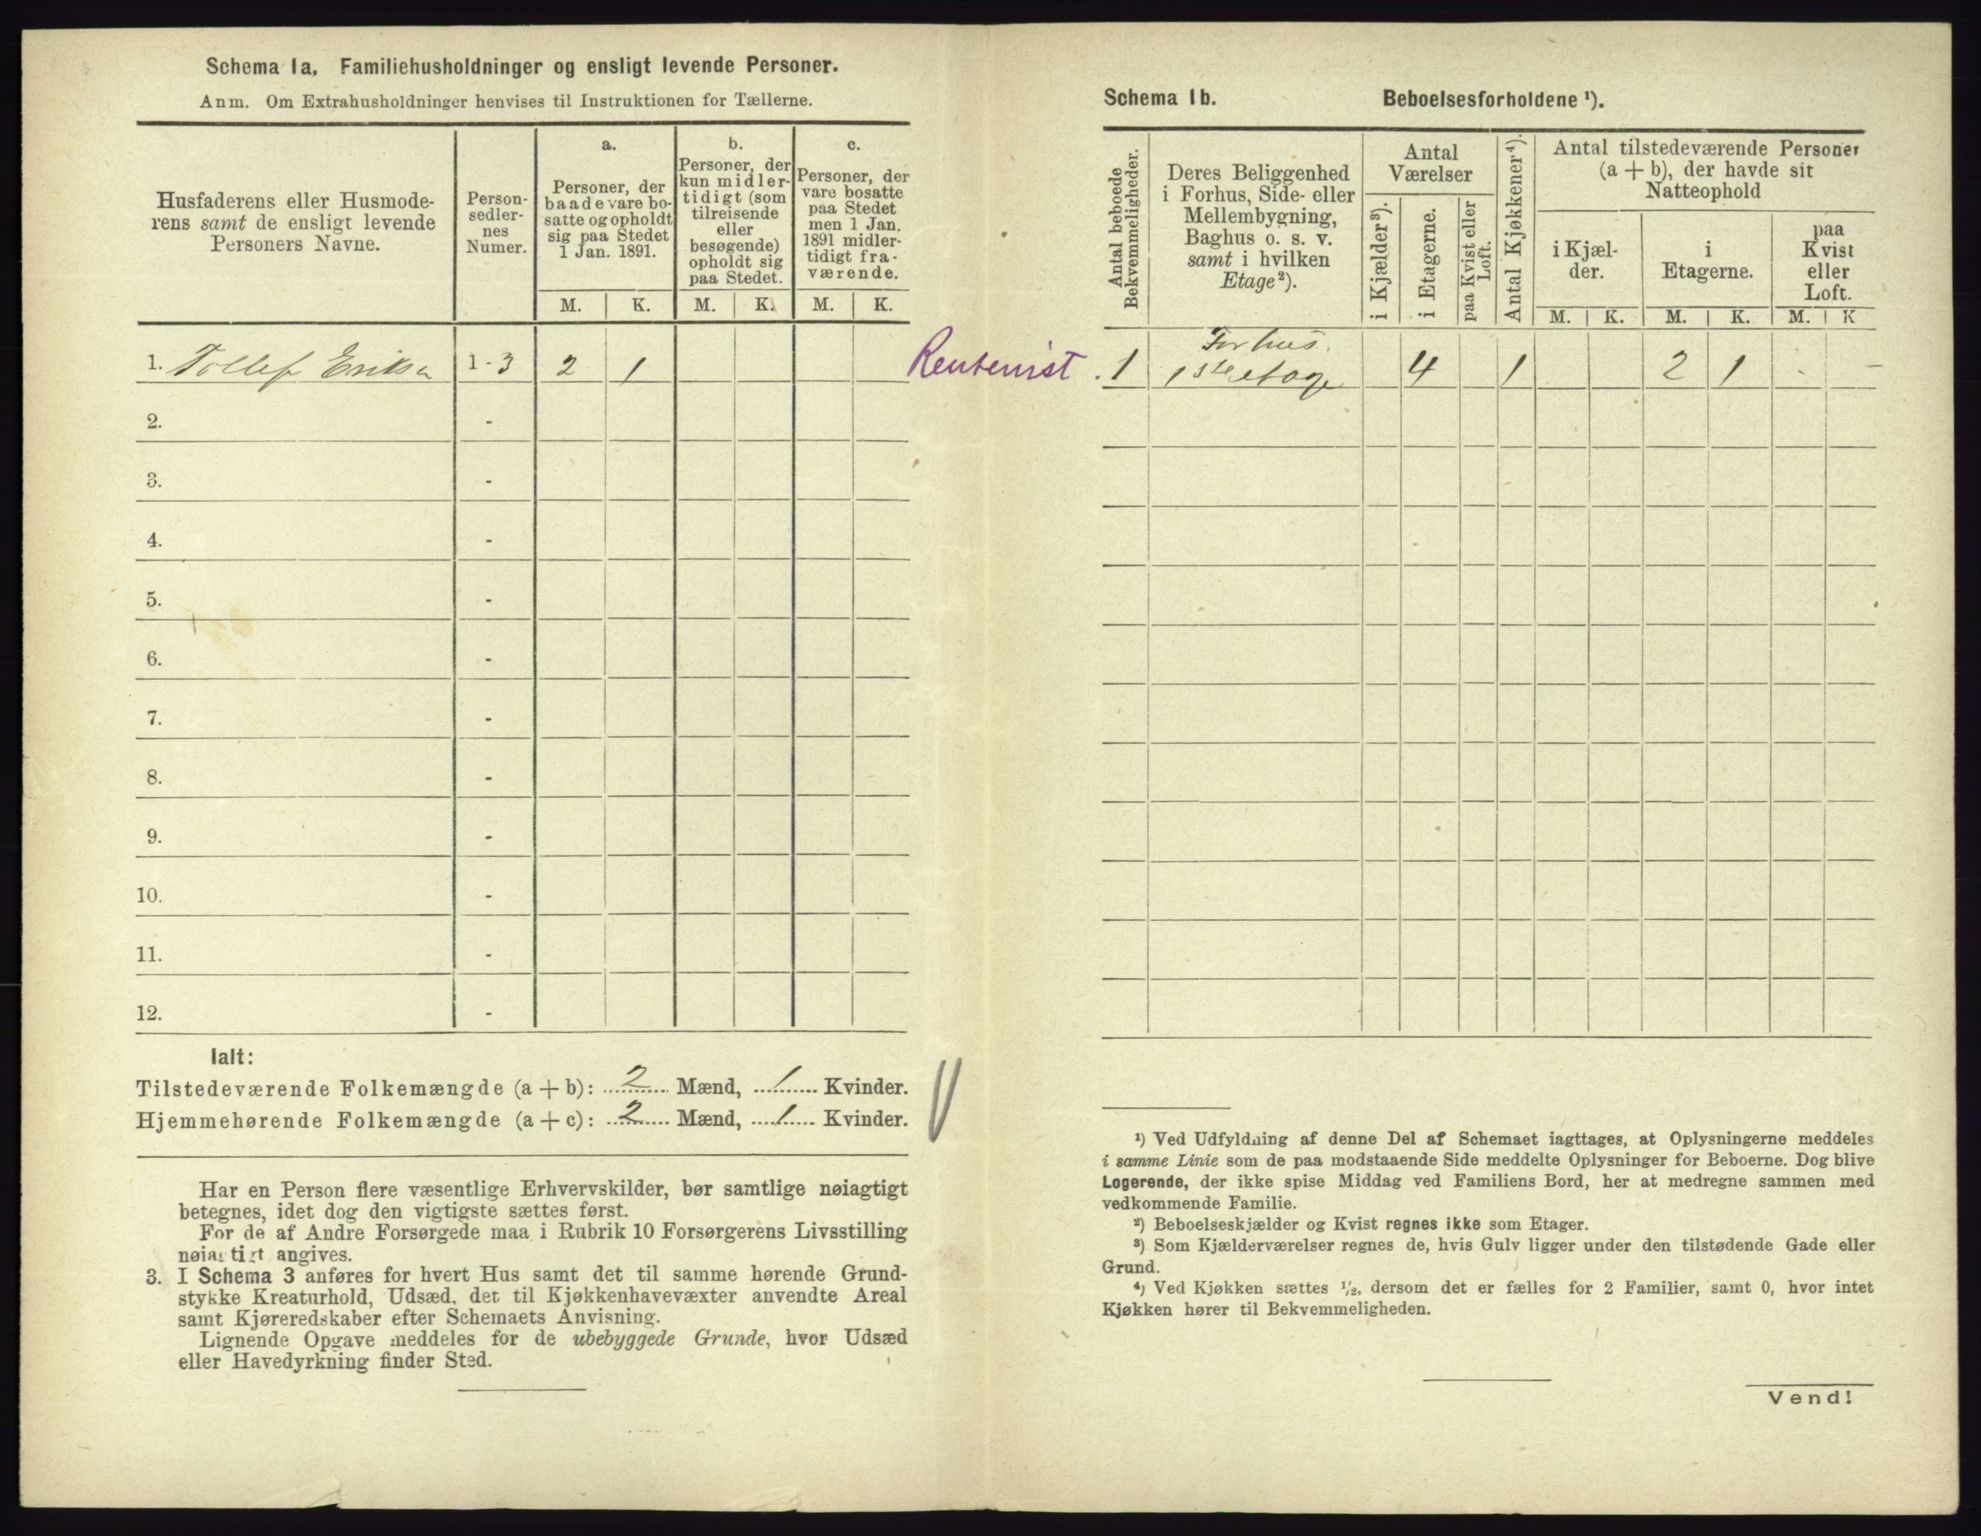 Schema Ia. Familiehusholdninger og ensligt levende Personer.
Anm. Om Extrahusholdninger henvises til Instruktionen for Tællerne.
Husfaderens eller Husmode-
rens samt de ensligt levende
Personers Navne.
Person-
sedler-
nes
Numer.
a.
Personer, der
baade vare bo-
satte og opholdt
sig paa Stedet
1 Jan. 1891.
b.
Personer, der
kun midler-
tidigt (som
tilreisende
eller
besøgende)
opholdt sig
paa Stedet.
c.
Personer, der
vare bosatte
paa Stedet
men 1 Jan.
1891 midler-
tidigt fra-
værende.
M. K. M. K. M. K.
1. Tollef Eriksen 1-3 2 1
2. -
3. -
4. -
5. -
6. -
7. -
8. -
9. -
10. -
11. -
12. -
Ialt:
Tilstedeværende Folkemængde (a + b): 2 Mænd, 1 Kvinder.
Hjemmehørende Folkemængde (a + c): 2 Mænd, 1 Kvinder.
Har en Person flere væsentlige Erhvervskilder, bør samtlige nøiagtigt
betegnes, idet dog den vigtigste sættes først.
For de af Andre Forsørgede maa i Rubrik 10 Forsørgerens Livsstilling
nøiagtigt angives.
3. I Schema 3 anføres for hvert Hus samt det til samme hørende Grund-
stykke Kreaturhold, Udsæd, det til Kjøkkenhavevæxter anvendte Areal
samt Kjøreredskaber efter Schemaets Anvisning.
Lignende Opgave meddeles for de ubebyggede Grunde, hvor Udsæd
eller Havedyrkning finder Sted.
Schema Ib. Beboelsesforholdene ¹).
Antal beboede
Bekvemmeligheder.
Deres Beliggenhed
i Forhus, Side- eller
Mellembygning,
Baghus o. s. v.
samt i hvilken
Etage²).
Antal
Værelser
i Kjælder³).
i Etagerne.
paa Kvist eller
Loft.
Antal Kjøkkener⁴).
Antal tilstedeværende Personer
(a + b), der havde sit
Natteophold
i Kjæl-
der.
i
Etagerne.
paa
Kvist
eller
Loft.
M. K. M. K. M. K
Rentenist . 1 Forhus.
1ste etage 4 1 2 1 - -
¹) Ved Udfyldning af denne Del af Schemaet iagttages, at Oplysningerne meddeles
i samme Linie som de paa modstaaende Side meddelte Oplysninger for Beboerne. Dog blive
Logerende, der ikke spise Middag ved Familiens Bord, her at medregne sammen med
vedkommende Familie.
²) Beboelseskjælder og Kvist regnes ikke som Etager.
³) Som Kjælderværelser regnes de, hvis Gulv ligger under den tilstødende Gade eller
Grund.
⁴) Ved Kjøkken sættes ½, dersom det er fælles for 2 Familier, samt 0, hvor intet
Kjøkken hører til Bekvemmeligheden.
Vend!